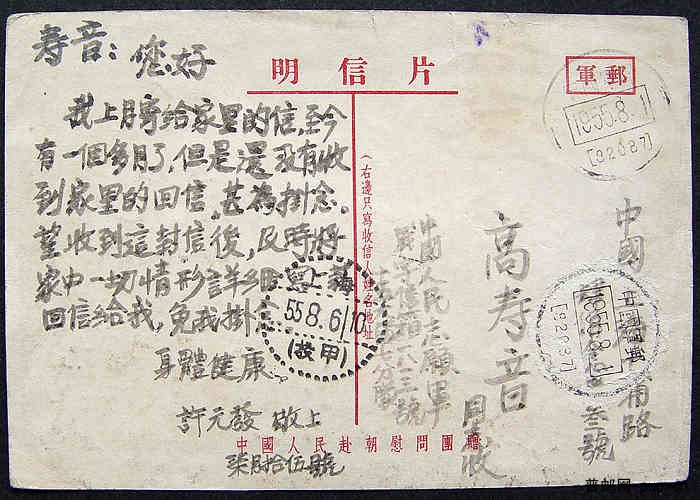 寿音：您好
明信片
軍郵
我上月寄給家里的信，至今
有一個多月了，但是還没有收
到家里的回信。甚為掛念。
望收到這封信後，及時將
家中一切情形詳細寫
回信給我，免我掛
身體健康
許元發 敬上
拾伍號
（右邊只寫收信人姓名地址
中國
南路
叁號
高寿音
收
中國人民志願軍
中國人民赴朝慰問團贈
1955.8.1
[92027]
上海
55.8.6.10
(投甲)
1955.8.1
(92037)